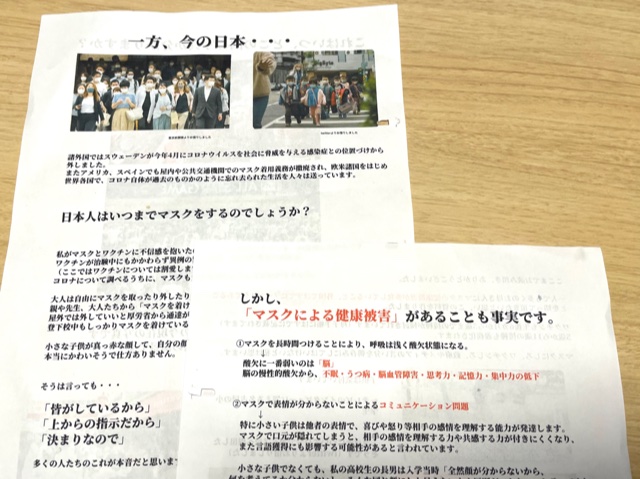 一方、今の日本・・・
諸外国ではスウェーデンが今年4月にコロナウイルスを社会に脅威を与える感染症との位置づけから
外しました。
またアメリカ、スペインでも屋内や公共交通機関でのマスク着用義務が撤廃され、欧米諸国をはじめ
世界各国で、コロナ自体が過去のものかのように忘れ去られた生活を人々は送っています。
日本人はいつまでマスクをするのでしょうか？
私がマスクとワクチンに不信感を抱いた
ワクチンが治験中にもかかわらず異例の
（ここではワクチンについては割愛しま
コロナについて調べるうちに、マスクも
大人は自由にマスクを取ったり外したり
親や先生、大人たちから「マスクを着け
屋外では外していいと厚労省から通達が
登下校中もしっかりマスクを着けている
小さな子供が真っ赤な顔して、自分の
本当にかわいそうで仕方ありません。
そうは言っても・・・
「皆がしているから」
「上からの指示だから」
「決まりなので」
多くの人たちのこれが本音だと思いま
しかし、
「マスクによる健康被害」があることも事実です。
①マスクを長時間つけることにより、呼吸は浅く酸欠状態になる。
↓
酸欠に一番弱いのは「脳」
脳の慢性的酸欠から、不眠・うつ病・脳血管障害・思考力・記憶力・集中力の低下
②マスクで表情が分からないことによるコミュニケーション問題
↓
特に小さい子供は他者の表情で、喜びや怒り等相手の感情を理解する能力が発達します。
マスクで口元が隠れてしまうと、相手の感情を理解する力や共感する力が付きにくくなり、
また言語獲得にも影響する可能性があると言われています。
小さな子供でなくても、私の高校生の長男は入学当時「全然顔が分からないから、